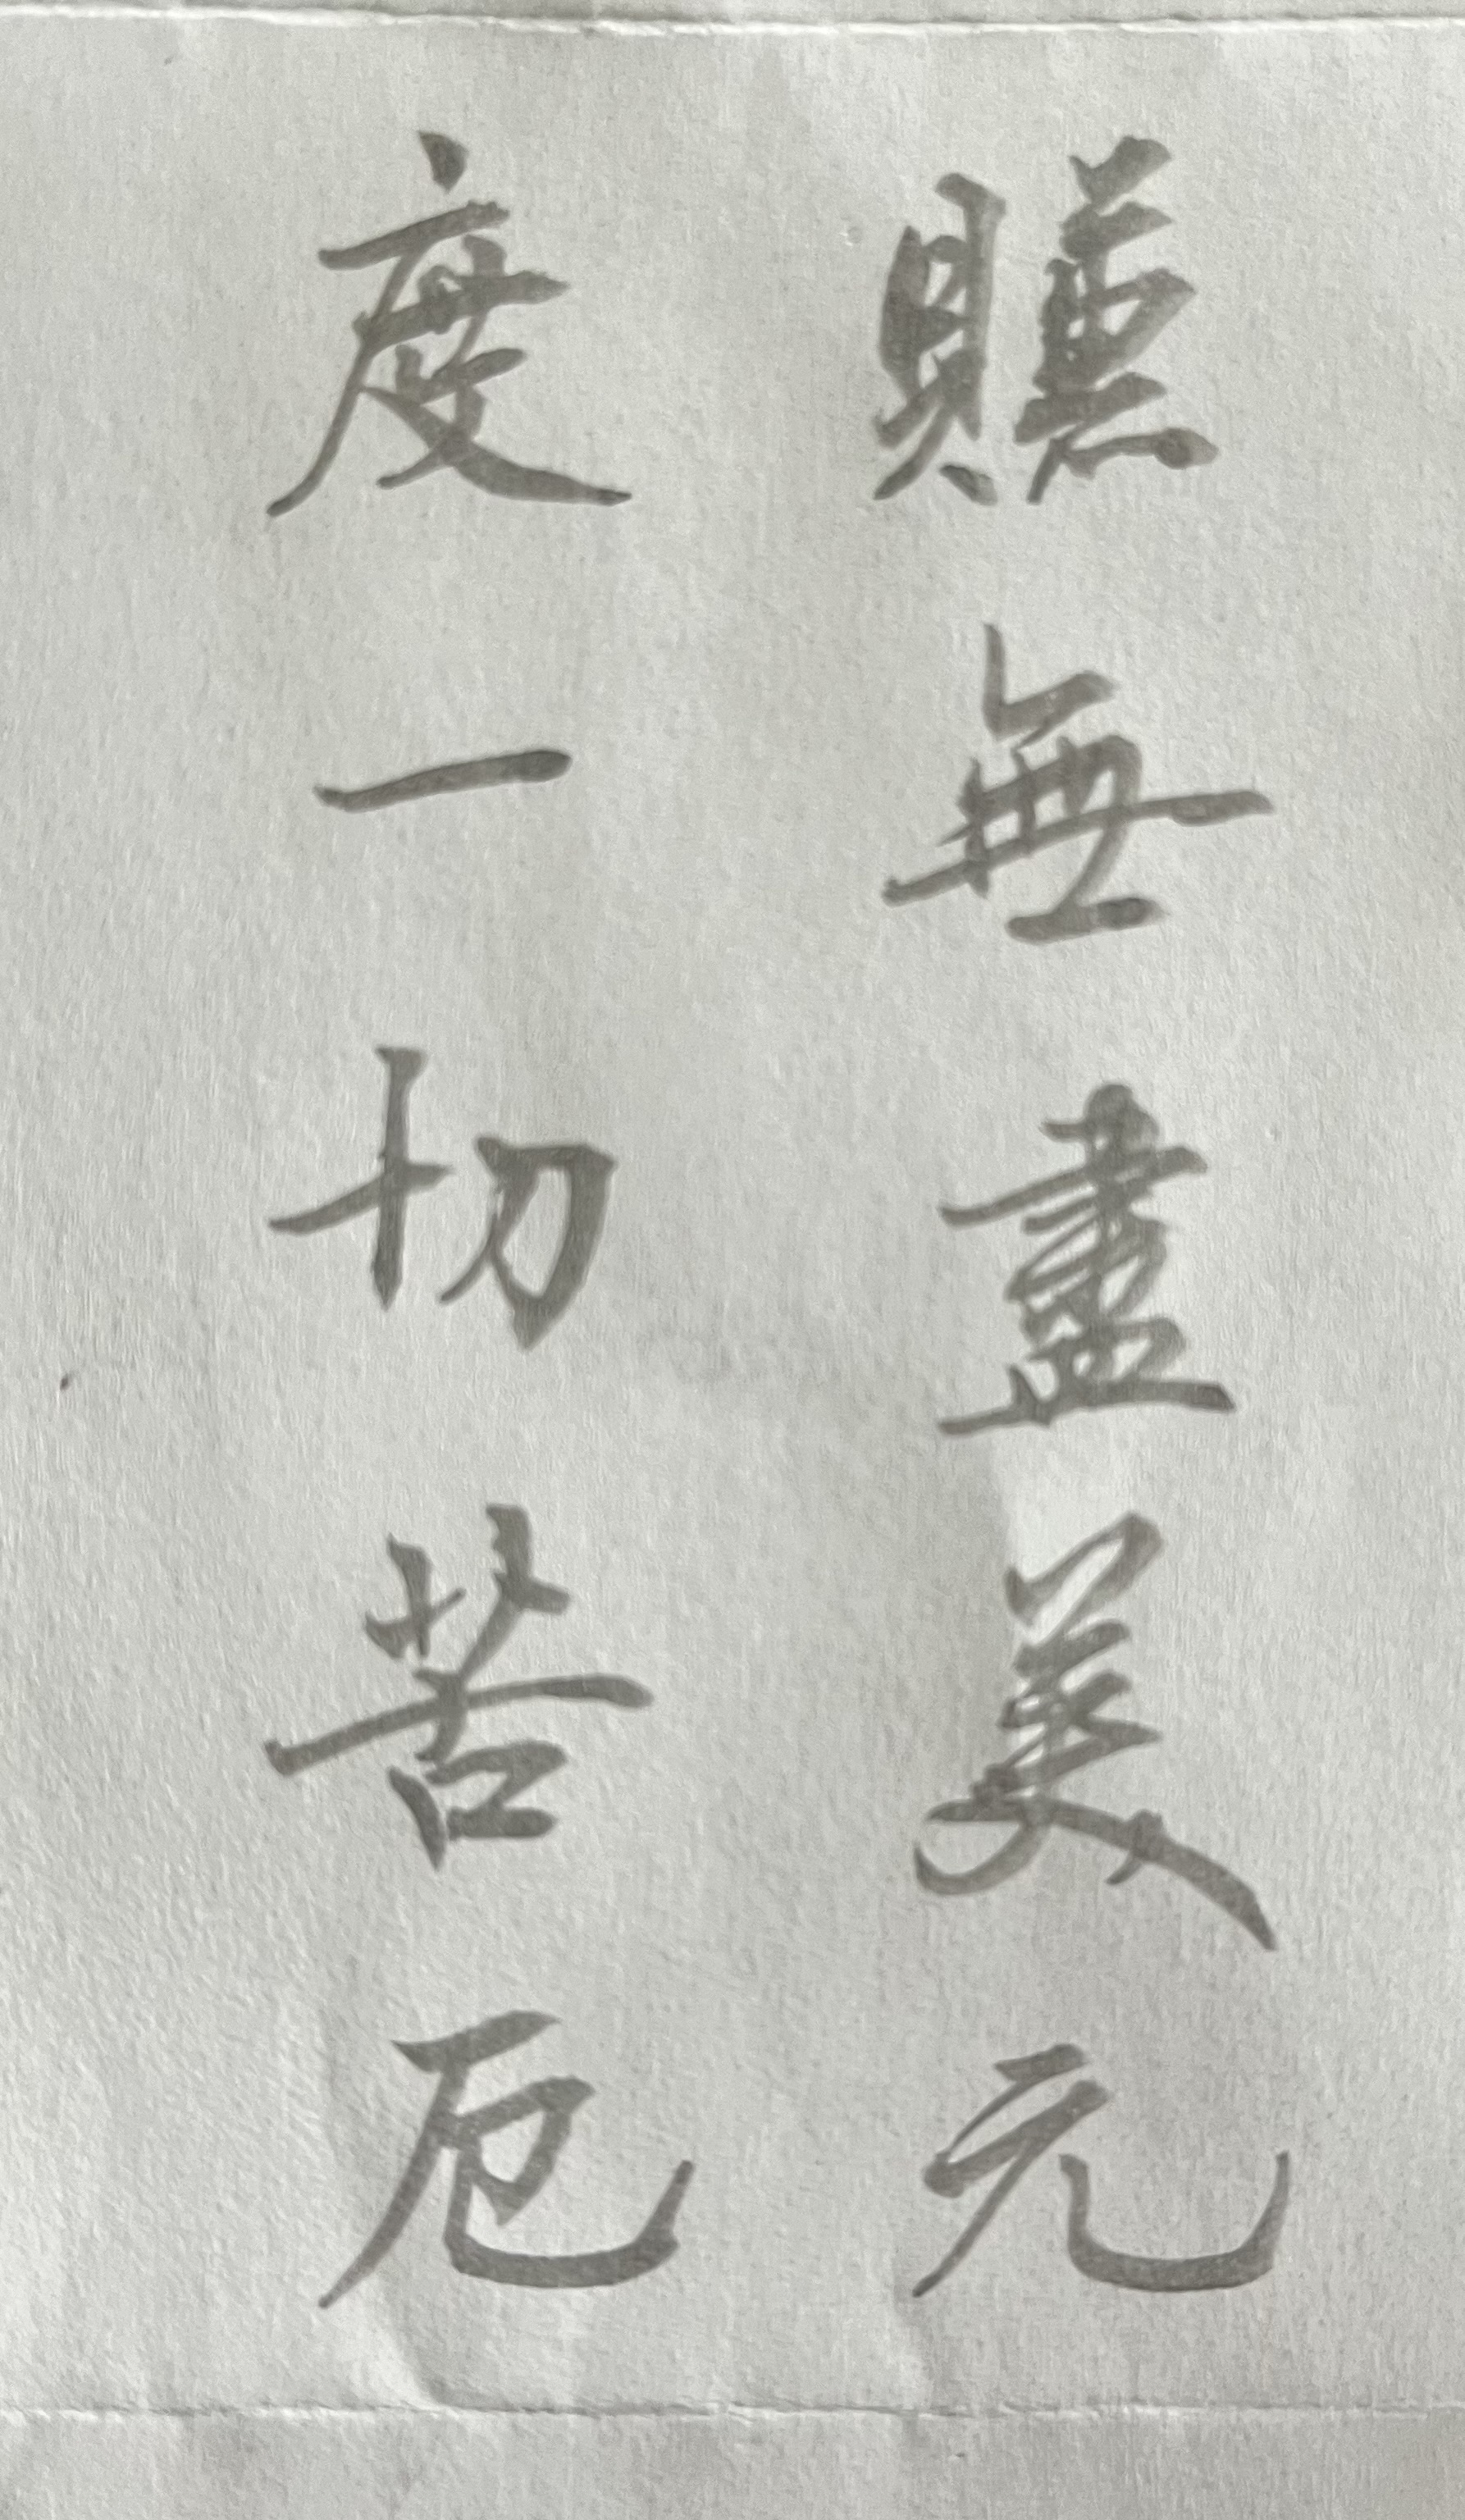 賺無盡美元
度一切苦厄